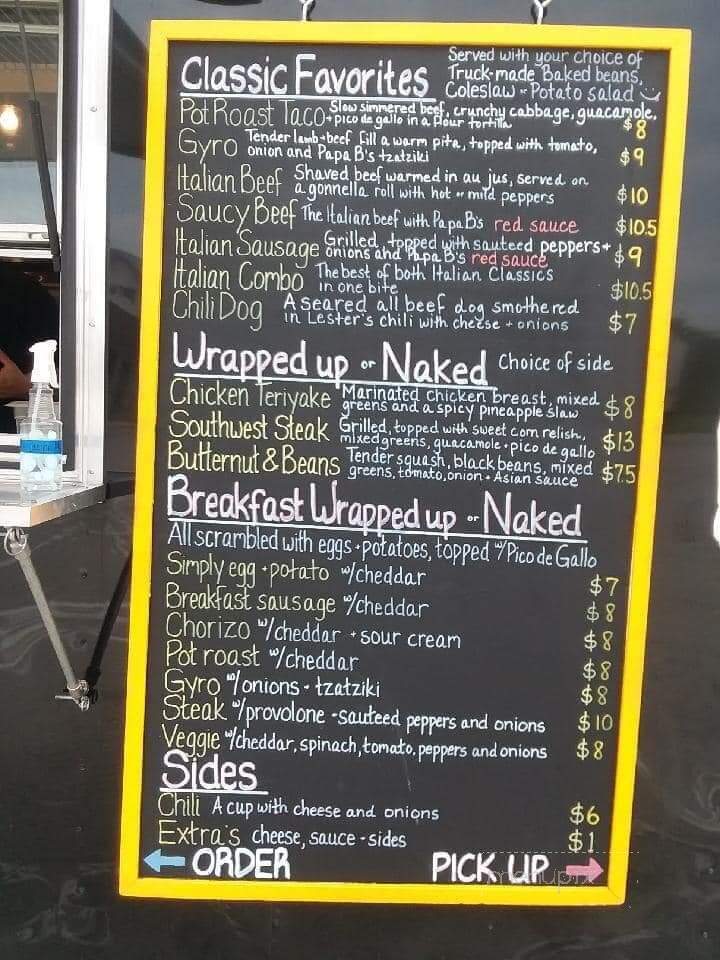 Classic Favorites
Served with your choice of
Truck-made Baked beans,
Coleslaw or Potato salad
Pot Roast Taco Slow simmered beef, crunchy cabbage, guacamole,
+ pico de gallo in a flour tortilla $8
Gyro Tender lamb + beef fill a warm pita, topped with tomato,
onion and Papa B's tzatziki $9
Italian Beef Shaved beef warmed in au jus, served on
a gonnella roll with hot or mild peppers $10
Saucy Beef The Italian beef with Papa B's red sauce $10.5
Italian Sausage Grilled, topped with sauteed peppers +
onions and Papa B's red sauce $9
Italian Combo The best of both Italian Classics
in one bite $10.5
Chili Dog A seared all beef dog smothered
in Lester's chili with cheese + onions $7
Wrapped up or Naked Choice of side
Chicken Teriyake Marinated chicken breast, mixed
greens and a spicy pineapple slaw $8
Southwest Steak Grilled, topped with sweet corn relish,
mixed greens, guacamole + pico de gallo $13
Butternut & Beans Tender squash, black beans, mixed
greens, tomato, onion + Asian sauce $7.5
Breakfast Wrapped up or Naked
All scrambled with eggs + potatoes, topped w/ Pico de Gallo
Simply egg + potato w/cheddar $7
Breakfast sausage w/cheddar $8
Chorizo w/cheddar + sour cream $8
Pot roast w/cheddar $8
Gyro w/onions + tzatziki $8
Steak w/provolone + sauteed peppers and onions $10
Veggie w/cheddar, spinach, tomato, peppers and onions $8
Sides
Chili A cup with cheese and onions $6
Extra's cheese, sauce + sides $1
ORDER PICK UP